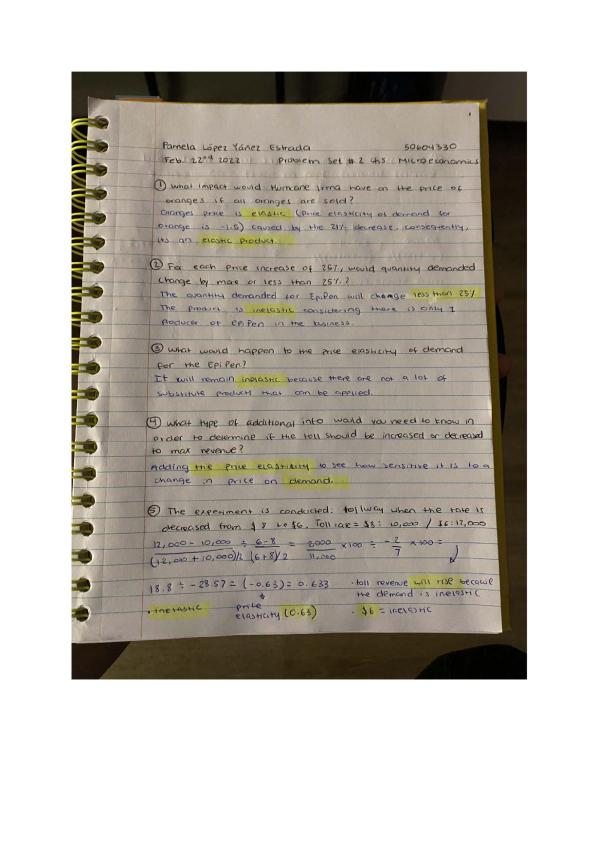 Pamela López Yánez Estrada 50604330
Feb. 22nd 2022 Problem Set #2 Ch5 Microeconomics
① What impact would Hurricane Irma have on the price of
oranges if all oranges are sold?
Oranges price is elastic (price elasticity of demand for
orange is -1.5) caused by the 21% decrease. Consequently,
its an elastic product.
② For each price increase of 25%, would quantity demanded
change by more or less than 25%?
The quantity demanded for EpiPen will change less than 25%
The product is inelastic considering there is only 1
Producer of EpiPen in the business.
③ What would happen to the price elasticity of demand
for the EpiPen?
It will remain inelastic because there are not a lot of
substitute products that can be applied.
④ What type of additional info would you need to know in
order to determine if the toll should be increased or decreased
to max revenue?
Adding the price elasticity to see how sensitive it is to a
change in price on demand.
⑤ The experiment is conducted. tollway when the rate is
decreased from $8 to $6. Toll rate = $8: 10,000 / $6: 12,000
12,000 - 10,000 ÷ 6-8 = 2,000 x100 ÷ -2 x100 =
(12,000 + 10,000)/2 (6+8)/2 11,000 7
18.8 ÷ -28.57 = (-0.63) = 0.633 · toll revenue will rise because
the demand is inelastic
· inelastic price
elasticity (0.63) · $6 = inelastic